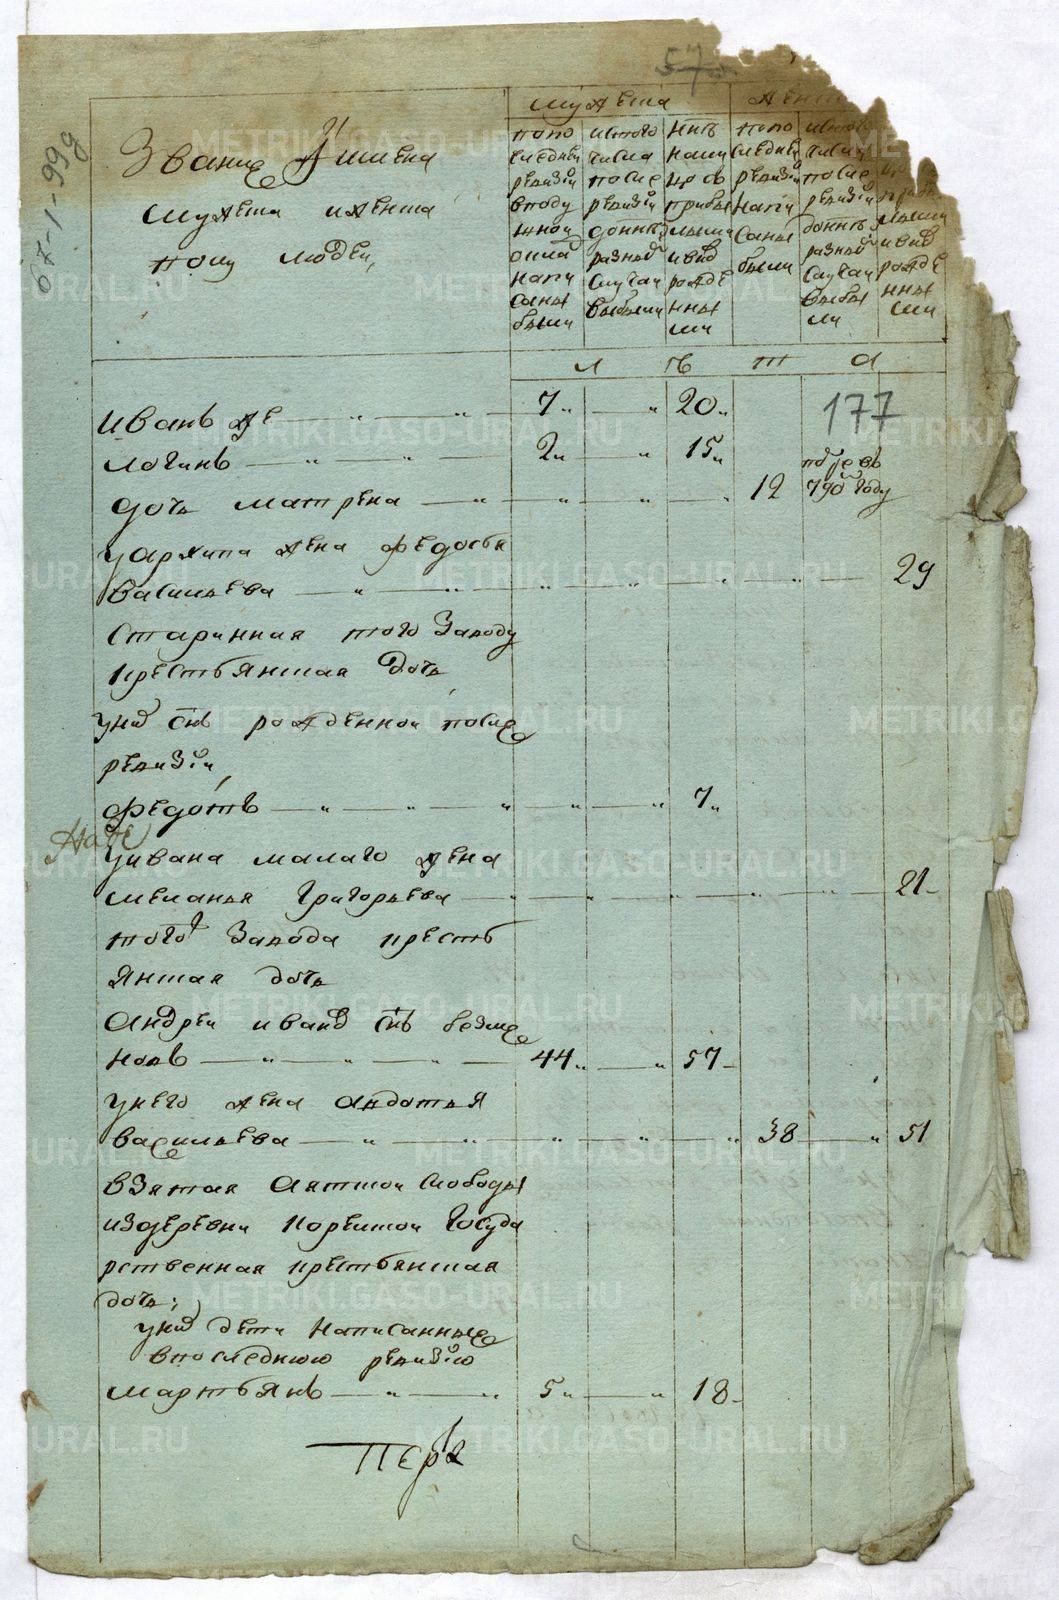 57
67-1-99д
Звание Имена
мужеска и женска
полу людей,
мужеска
попо
следней
ревизии
в поду
шной
окла
напи
саны
были
из того
числа
после
ревизии
до нне
разный
случаи
выбыли
ныне
нали
цо съ
прибы
лыми
и вновь
рожде
нны
ми
попо
следней
ревизии
напи
саны
были
из того
числа
после
ревизии
до нне
разный
случаи
выбы
ли
лыми
и вновь
рожде
нны
ми
л ѣ т а
177
Иванъ же — „ — „ — 7 „ — „ 20 „
Логинъ — „ — „ — 2 „ — „ 15 „
дочь Матрена — „ — „ — „ — „ 12
790 году
у Архипа жена Федосья
Васильева — „ — „ — „ — „ — „ — „ — 29
старинная того Заводу
крестьянская дочь,
у них снъ рожденной после
ревизии,
Федотъ — „ — „ — „ — „ — „ 7 „
у Ивана малаго жена
Меланья Григорьева — „ — „ — „ — „ — „ — 21
того Завода кресть
янская дочь
Андреи Иванов снъ
новъ — „ — „ — „ — 44 „ — „ 57
у него жена Авдотья
Васильева — „ — „ — „ — „ — „ 38 — „ 51
взятая Аятской слободы
из деревни Корелской Госуда
рственная крестьянская
дочь;
у них дети написанные
в последнюю ревизию
Мартьянъ — „ — „ 5 „ — „ 18
METRIKI.GASO-URAL.RU